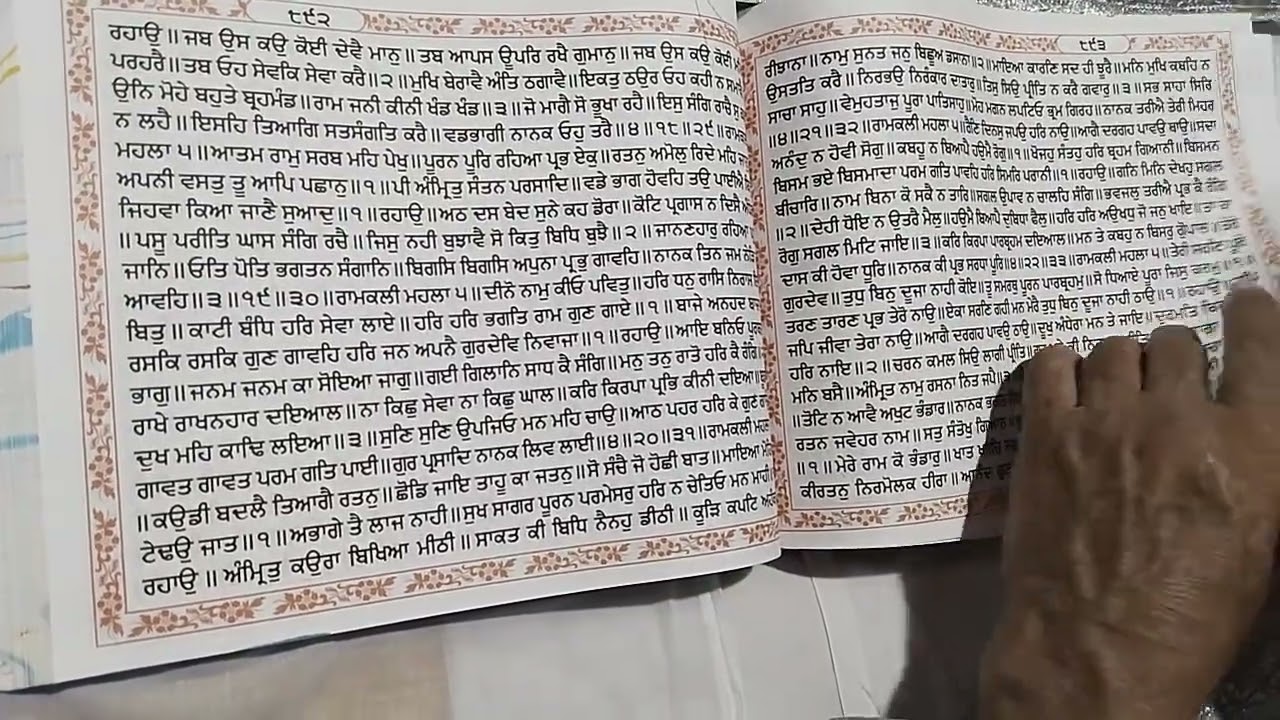 ੮੯੨
ਰਹਾਉ ॥ ਜਬ ਉਸ ਕਉ ਕੋਈ ਦੇਵੈ ਮਾਨੁ ॥ ਤਬ ਆਪਸ ਊਪਰਿ ਰਖੈ ਗੁਮਾਨੁ ॥ ਜਬ ਉਸ ਕਉ ਕੋਈ
ਪਰਹਰੈ ॥ ਤਬ ਓਹ ਸੇਵਕਿ ਸੇਵਾ ਕਰੈ ॥੨॥ ਮੁਖਿ ਬੇਰਾਵੈ ਅੰਤਿ ਠਗਾਵੈ ॥ ਇਕਤੁ ਠਉਰ ਓਹ ਕਹੀ ਨ
ਉਨਿ ਮੋਹੇ ਬਹੁਤੇ ਬ੍ਰਹਮੰਡ ॥ ਰਾਮ ਜਨੀ ਕੀਨੀ ਖੰਡ ਖੰਡ ॥੩॥ ਜੋ ਮਾਗੈ ਸੋ ਭੂਖਾ ਰਹੈ ॥ ਇਸੁ ਸੰਗਿ ਰਾਚੈ ਸੁ
ਨ ਲਹੈ ॥ ਇਸਹਿ ਤਿਆਗਿ ਸਤਸੰਗਤਿ ਕਰੈ ॥ ਵਡਭਾਗੀ ਨਾਨਕ ਓਹੁ ਤਰੈ ॥੪॥੧੮॥੨੯॥
ਮਹਲਾ ੫ ॥ ਆਤਮ ਰਾਮੁ ਸਰਬ ਮਹਿ ਪੇਖੁ ॥ ਪੂਰਨ ਪੂਰਿ ਰਹਿਆ ਪ੍ਰਭ ਏਕੁ ॥ ਰਤਨੁ ਅਮੋਲੁ ਰਿਦੇ ਮਹਿ
ਅਪਨੀ ਵਸਤੁ ਤੂ ਆਪਿ ਪਛਾਨੁ ॥੧॥ ਪੀ ਅੰਮ੍ਰਿਤੁ ਸੰਤਨ ਪਰਸਾਦਿ ॥ ਵਡੇ ਭਾਗ ਹੋਵਹਿ ਤਉ ਪਾਈਐ
ਜਿਹਵਾ ਕਿਆ ਜਾਣੈ ਸੁਆਦੁ ॥੧॥ ਰਹਾਉ ॥ ਅਠ ਦਸ ਬੇਦ ਸੁਨੇ ਕਹ ਡੋਰਾ ॥ ਕੋਟਿ ਪ੍ਰਗਾਸ ਨ ਦਿਸੈ
॥ ਪਸੂ ਪਰੀਤਿ ਘਾਸ ਸੰਗਿ ਰਚੈ ॥ ਜਿਸੁ ਨਹੀ ਬੁਝਾਵੈ ਸੋ ਕਿਤੁ ਬਿਧਿ ਬੁਝੈ ॥੨॥ ਜਾਨਣਹਾਰੁ ਰਹਿਆ
ਜਾਨਿ ॥ ਓਤਿ ਪੋਤਿ ਭਗਤਨ ਸੰਗਾਨਿ ॥ ਬਿਗਸਿ ਬਿਗਸਿ ਅਪੁਨਾ ਪ੍ਰਭੁ ਗਾਵਹਿ ॥ ਨਾਨਕ ਤਿਨ ਜਮ
ਆਵਹਿ ॥੩॥੧੯॥੩੦॥ ਰਾਮਕਲੀ ਮਹਲਾ ੫ ॥ ਦੀਨੋ ਨਾਮੁ ਕੀਓ ਪਵਿਤੁ ॥ ਹਰਿ ਧਨੁ ਰਾਸਿ
ਬਿਤੁ ॥ ਕਾਟੀ ਬੰਧਿ ਹਰਿ ਸੇਵਾ ਲਾਏ ॥ ਹਰਿ ਹਰਿ ਭਗਤਿ ਰਾਮ ਗੁਣ ਗਾਏ ॥੧॥ ਬਾਜੇ ਅਨਹਦ
ਰਸਕਿ ਰਸਕਿ ਗੁਣ ਗਾਵਹਿ ਹਰਿ ਜਨ ਅਪਨੈ ਗੁਰਦੇਵਿ ਨਿਵਾਜਾ ॥੧॥ ਰਹਾਉ ॥ ਆਇ ਬਨਿਓ
ਭਾਗੁ ॥ ਜਨਮ ਜਨਮ ਕਾ ਸੋਇਆ ਜਾਗੁ ॥ ਗਈ ਗਿਲਾਨਿ ਸਾਧ ਕੈ ਸੰਗਿ ॥ ਮਨੁ ਤਨੁ ਰਾਤੋ ਹਰਿ ਕੈ ਰੰਗਿ
ਰਾਖੇ ਰਾਖਨਹਾਰ ਦਇਆਲ ॥ ਨਾ ਕਿਛੁ ਸੇਵਾ ਨਾ ਕਿਛੁ ਘਾਲ ॥ ਕਰਿ ਕਿਰਪਾ ਪ੍ਰਭਿ ਕੀਨੀ ਦਇਆ ॥
ਦੁਖ ਮਹਿ ਕਾਢਿ ਲਇਆ ॥੩॥ ਸੁਣਿ ਸੁਣਿ ਉਪਜਿਓ ਮਨ ਮਹਿ ਚਾਉ ॥ ਆਠ ਪਹਰ ਹਰਿ ਕੇ ਗੁਣ
ਗਾਵਤ ਗਾਵਤ ਪਰਮ ਗਤਿ ਪਾਈ ॥ ਗੁਰ ਪ੍ਰਸਾਦਿ ਨਾਨਕ ਲਿਵ ਲਾਈ ॥੪॥੨੦॥੩੧॥ ਰਾਮਕਲੀ
॥ ਕਉਡੀ ਬਦਲੈ ਤਿਆਗੈ ਰਤਨੁ ॥ ਛੋਡਿ ਜਾਇ ਤਾਹੂ ਕਾ ਜਤਨੁ ॥ ਸੋ ਸੰਚੈ ਜੋ ਹੋਛੀ ਬਾਤ ॥ ਮਾਇਆ
ਟੇਢਉ ਜਾਤ ॥੧॥ ਅਭਾਗੇ ਤੈ ਲਾਜ ਨਾਹੀ ॥ ਸੁਖ ਸਾਗਰ ਪੂਰਨ ਪਰਮੇਸਰੁ ਹਰਿ ਨ ਚੇਤਿਓ ਮਨ ਮਾਹੀ
ਰਹਾਉ ॥ ਅੰਮ੍ਰਿਤੁ ਕਉਰਾ ਬਿਖਿਆ ਮੀਠੀ ॥ ਸਾਕਤ ਕੀ ਬਿਧਿ ਨੈਨਹੁ ਡੀਠੀ ॥ ਕੂੜਿ ਕਪਟਿ
੮੯੩
ਰੀਝਾਨਾ ॥ ਨਾਮੁ ਸੁਨਤ ਜਨੁ ਬਿਛੂਅ ਡਸਾਨਾ ॥੨॥ ਮਾਇਆ ਕਾਰਣਿ ਸਦ ਹੀ ਝੂਰੈ ॥ ਮਨਿ ਮੁਖਿ ਕਬਹਿ ਨ
ਉਸਤਤਿ ਕਰੈ ॥ ਨਿਰਭਉ ਨਿਰੰਕਾਰ ਦਾਤਾਰੁ ॥ ਤਿਸੁ ਸਿਉ ਪ੍ਰੀਤਿ ਨ ਕਰੈ ਗਵਾਰੁ ॥੩॥ ਸਭ ਸਾਹਾ ਸਿਰਿ
ਸਾਚਾ ਸਾਹੁ ॥ ਵੇਮੁਹਤਾਜੁ ਪੂਰਾ ਪਾਤਿਸਾਹੁ ॥ ਮੋਹ ਮਗਨ ਲਪਟਿਓ ਭ੍ਰਮ ਗਿਰਹ ॥ ਨਾਨਕ ਤਰੀਐ ਤੇਰੀ ਮਿਹਰ
॥੪॥੨੧॥੩੨॥ ਰਾਮਕਲੀ ਮਹਲਾ ੫ ॥ ਰੈਣਿ ਦਿਨਸੁ ਜਪਉ ਹਰਿ ਨਾਉ ॥ ਆਗੈ ਦਰਗਹ ਪਾਵਉ ਥਾਉ ॥ ਸਦਾ
ਅਨੰਦੁ ਨ ਹੋਵੀ ਸੋਗੁ ॥ ਕਬਹੂ ਨ ਬਿਆਪੈ ਹਉਮੈ ਰੋਗੁ ॥੧॥ ਖੋਜਹੁ ਸੰਤਹੁ ਹਰਿ ਬ੍ਰਹਮ ਗਿਆਨੀ ॥ ਬਿਸਮਨ
ਬਿਸਮ ਭਏ ਬਿਸਮਾਦਾ ਪਰਮ ਗਤਿ ਪਾਵਹਿ ਹਰਿ ਸਿਮਰਿ ਪਰਾਨੀ ॥੧॥ ਰਹਾਉ ॥ ਗਨਿ ਮਿਨਿ ਦੇਖਹੁ ਸਗਲ
ਬੀਚਾਰਿ ॥ ਨਾਮ ਬਿਨਾ ਕੋ ਸਕੈ ਨ ਤਾਰਿ ॥ ਸਗਲ ਉਪਾਵ ਨ ਚਾਲਹਿ ਸੰਗਿ ॥ ਭਵਜਲੁ ਤਰੀਐ ਪ੍ਰਭ ਕੈ ਰੰਗਿ
॥੨॥ ਦੇਹੀ ਧੋਇ ਨ ਉਤਰੈ ਮੈਲੁ ॥ ਹਉਮੈ ਬਿਆਪੈ ਦੁਬਿਧਾ ਫੈਲੁ ॥ ਹਰਿ ਹਰਿ ਅਉਖਧੁ ਜੋ ਜਨੁ ਖਾਇ ॥
ਰੋਗੁ ਸਗਲ ਮਿਟਿ ਜਾਇ ॥੩॥ ਕਰਿ ਕਿਰਪਾ ਪਾਰਬ੍ਰਹਮ ਦਇਆਲ ॥ ਮਨ ਤੇ ਕਬਹੁ ਨ ਬਿਸਰੁ ਗੋੁਪਾਲ ॥
ਦਾਸ ਕੀ ਹੋਵਾ ਧੂਰਿ ॥ ਨਾਨਕ ਕੀ ਪ੍ਰਭ ਸਰਧਾ ਪੂਰਿ ॥੪॥੨੨॥੩੩॥ ਰਾਮਕਲੀ ਮਹਲਾ ੫ ॥ ਤੇਰੀ ਸਰਣਿ
ਗੁਰਦੇਵ ॥ ਤੁਧੁ ਬਿਨੁ ਦੂਜਾ ਨਾਹੀ ਕੋਇ ॥ ਤੂ ਸਮਰਥੁ ਪੂਰਨ ਪਾਰਬ੍ਰਹਮੁ ॥ ਸੋ ਧਿਆਏ ਪੂਰਾ ਜਿਸੁ
ਤਰਣ ਤਾਰਣ ਪ੍ਰਭ ਤੇਰੋ ਨਾਉ ॥ ਏਕਾ ਸਰਣਿ ਗਹੀ ਮਨ ਮੇਰੈ ਤੁਧੁ ਬਿਨੁ ਦੂਜਾ ਨਾਹੀ ਠਾਉ ॥੧॥
ਜਪਿ ਜੀਵਾ ਤੇਰਾ ਨਾਉ ॥ ਆਗੈ ਦਰਗਹ ਪਾਵਉ ਠਾਉ ॥ ਦੂਖੁ ਅੰਧੇਰਾ ਮਨ ਤੇ ਜਾਇ ॥
ਹਰਿ ਨਾਇ ॥੨॥ ਚਰਨ ਕਮਲ ਸਿਉ ਲਾਗੀ ਪ੍ਰੀਤਿ ॥
ਮਨਿ ਬਸੈ ॥ ਅੰਮ੍ਰਿਤ ਨਾਮੁ ਰਸਨਾ ਨਿਤ ਜਪੈ ॥
॥ ਤੋਟਿ ਨ ਆਵੈ ਅਖੁਟ ਭੰਡਾਰ ॥ ਨਾਨਕ
ਰਤਨ ਜਵੇਹਰ ਨਾਮ ॥ ਸਤੁ ਸੰਤੋਖੁ
॥੧॥ ਮੇਰੇ ਰਾਮ ਕੋ ਭੰਡਾਰੁ ॥ ਖਾਤ
ਕੀਰਤਨੁ ਨਿਰਮੋਲਕ ਹੀਰਾ ॥